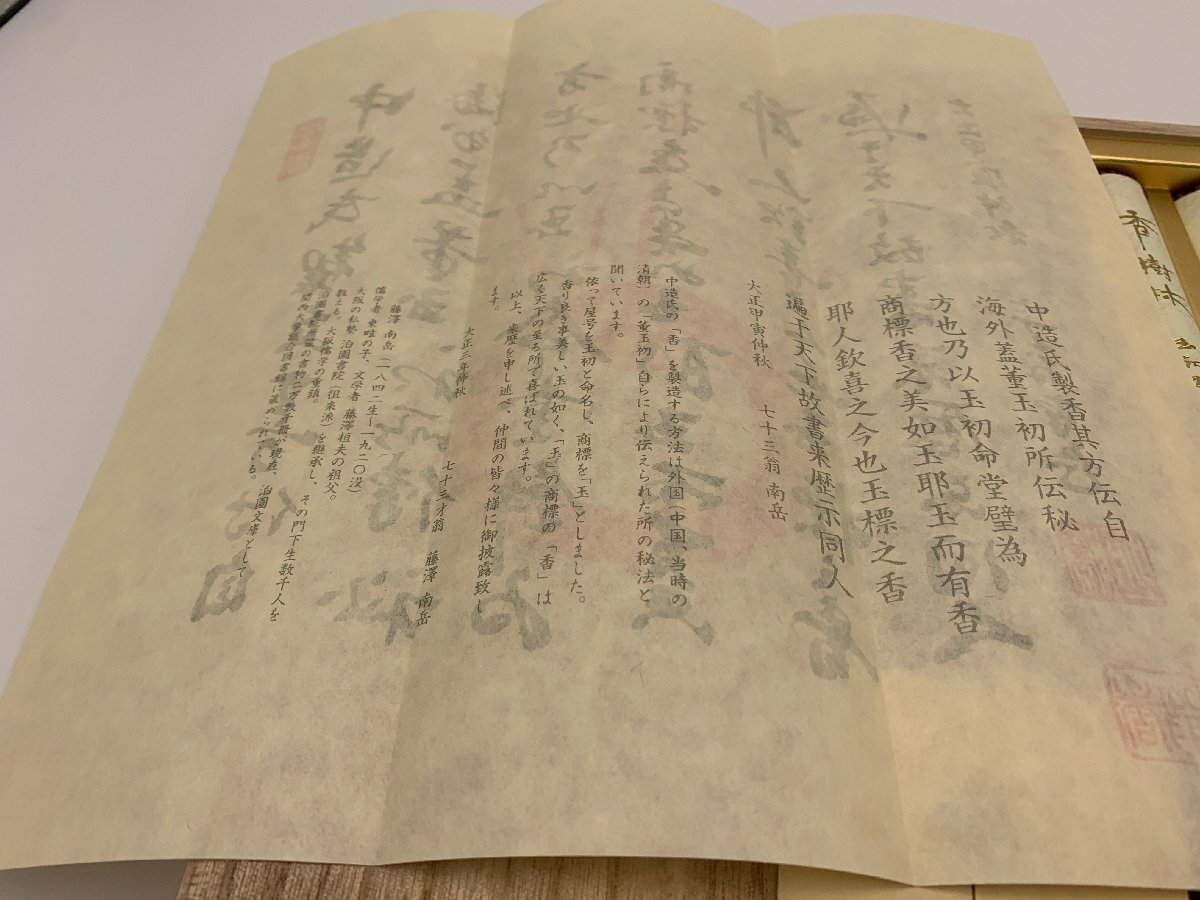 中造氏製香其方伝自
海外蓋董玉初所伝秘
方也乃以玉初命堂璧為
商標香之美如玉耶玉而有香
耶人欽喜之今也玉標之香
遍于天下故書来歴示同人
大正甲寅仲秋 七十三翁 南岳
中造氏の「香」を製造する方法は外国(中国、当時の
清朝)の「董玉初」自らにより伝えられた所の秘法と
聞いています。
依って屋号を玉初と命名し、商標を「玉」としました。
香り良き事美しい玉の如く、「玉」の商標の「香」は
広く天下の至る所で喜ばれています。
以上、来歴を申し述べ、仲間の皆々様に御披露致し
ます。
大正三年仲秋 七十三才翁 藤澤 南岳
藤澤 南岳(一八四二生ー一九二〇没)
儒学者 東畡の子、文学者 藤澤桓夫の祖父。
大阪の私塾 泊園書院(徂来派)を継承し、その門下生数千人を
教える。大阪儒学の重鎮。
泊園書院所蔵の書物二万数千冊が現在、泊園文庫として
関西大学総合図書館に蔵められている。
香樹林